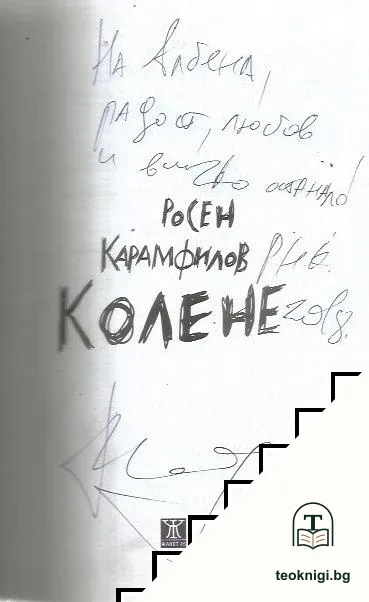 На Албена,
радост, любов
и всичко останало!
РОСЕН
КАРАМФИЛОВ
КОЛЕНЕ
2018.
ЖАНЕТ 45
T
teoknigi.bg